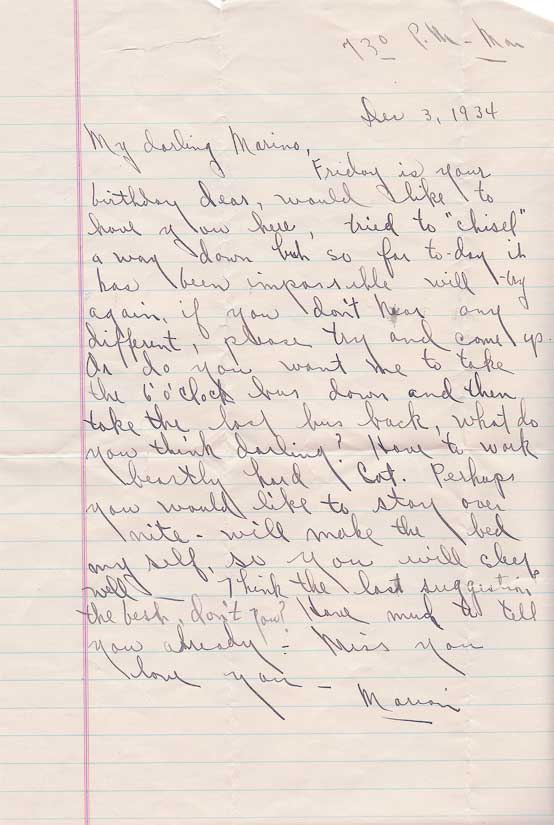 7 30 P.M. - Mon
Dec 3, 1934
My darling Marino,
Friday is your
birthday dear, would like to
have you here, tried to "chisel"
a way down but so far to-day it
has been impossible will try
again, if you don't hear any
different, please try and come up.
Or do you want me to take
the 6 o'clock bus down and then
take the last bus back, what do
you think darling? Have to work
beastly hard Sat. Perhaps
you would like to stay over
nite - will make the bed
my self, so you will sleep
well — Think the last suggestion
the best, don't you? Have much to tell
you already - Miss you
love you -
Marion